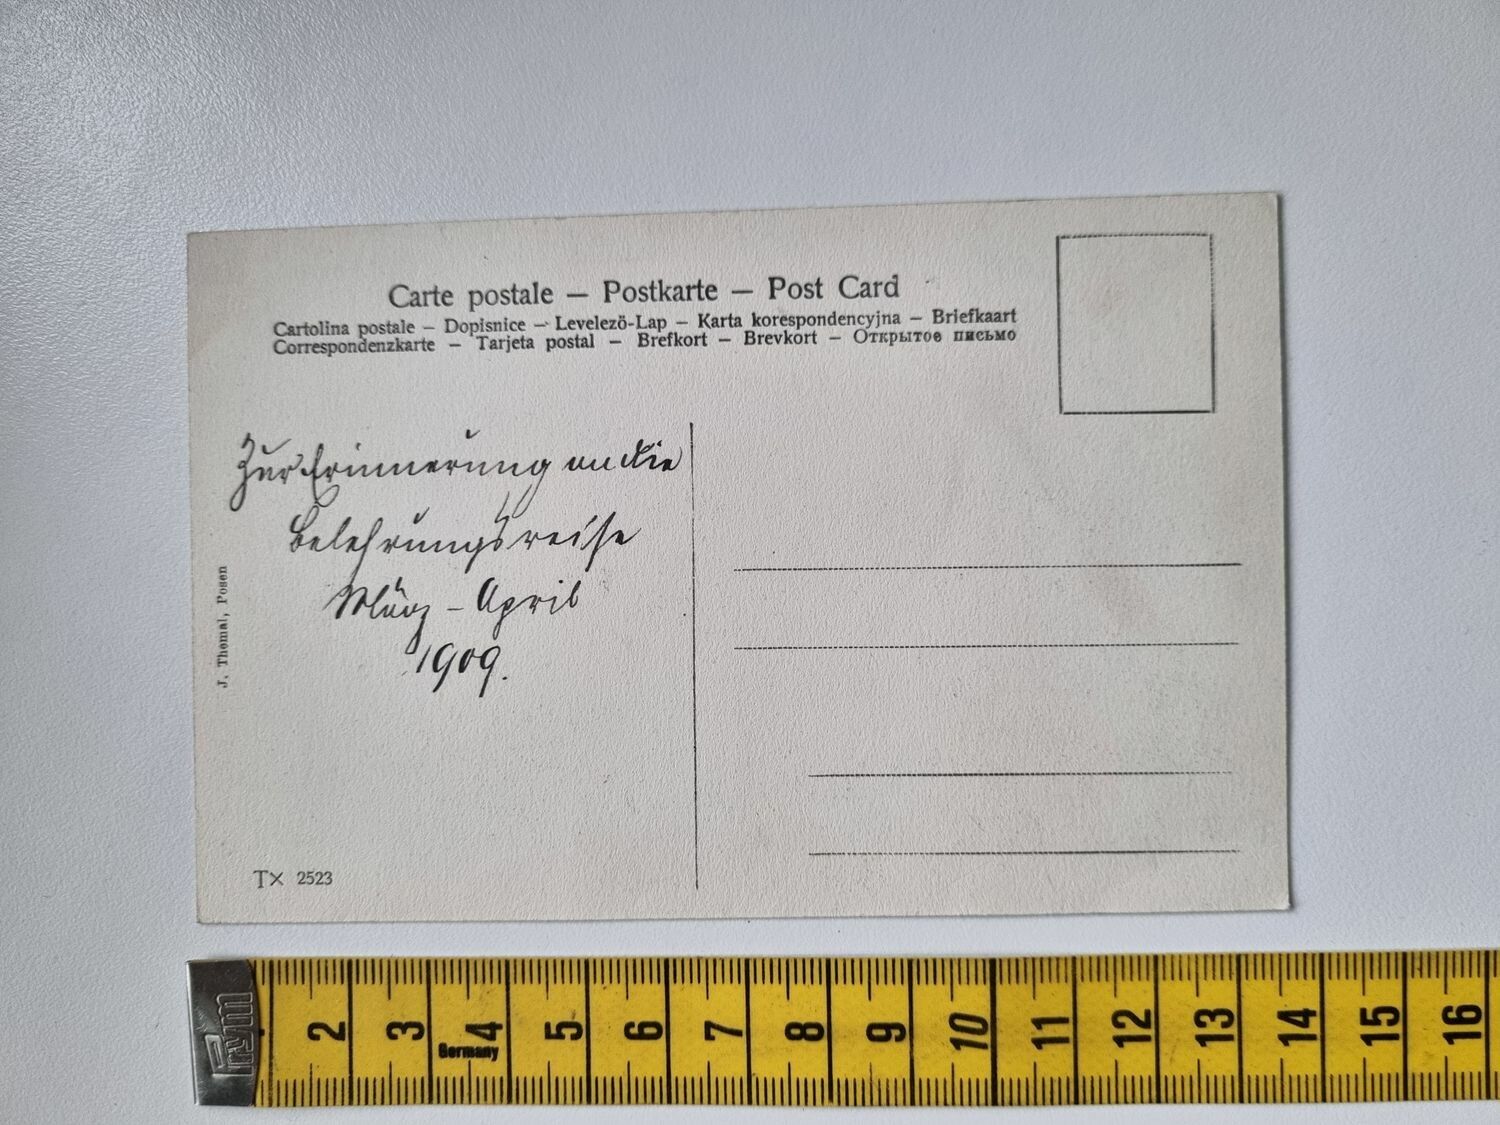 Carte postale — Postkarte — Post Card
Cartolina postale — Dopisnice — Levelezö-Lap — Karta korespondencyjna — Briefkaart
Correspondenzkarte — Tarjeta postal — Brefkort — Brevkort — Открытое письмо
Zur Erinnerung an die
Belehrungsreise
März – April
1909.
J. Themal, Posen
TX 2523
Prym
2 3 4 5 6 7 8 9 10 11 12 13 14 15 16
Germany